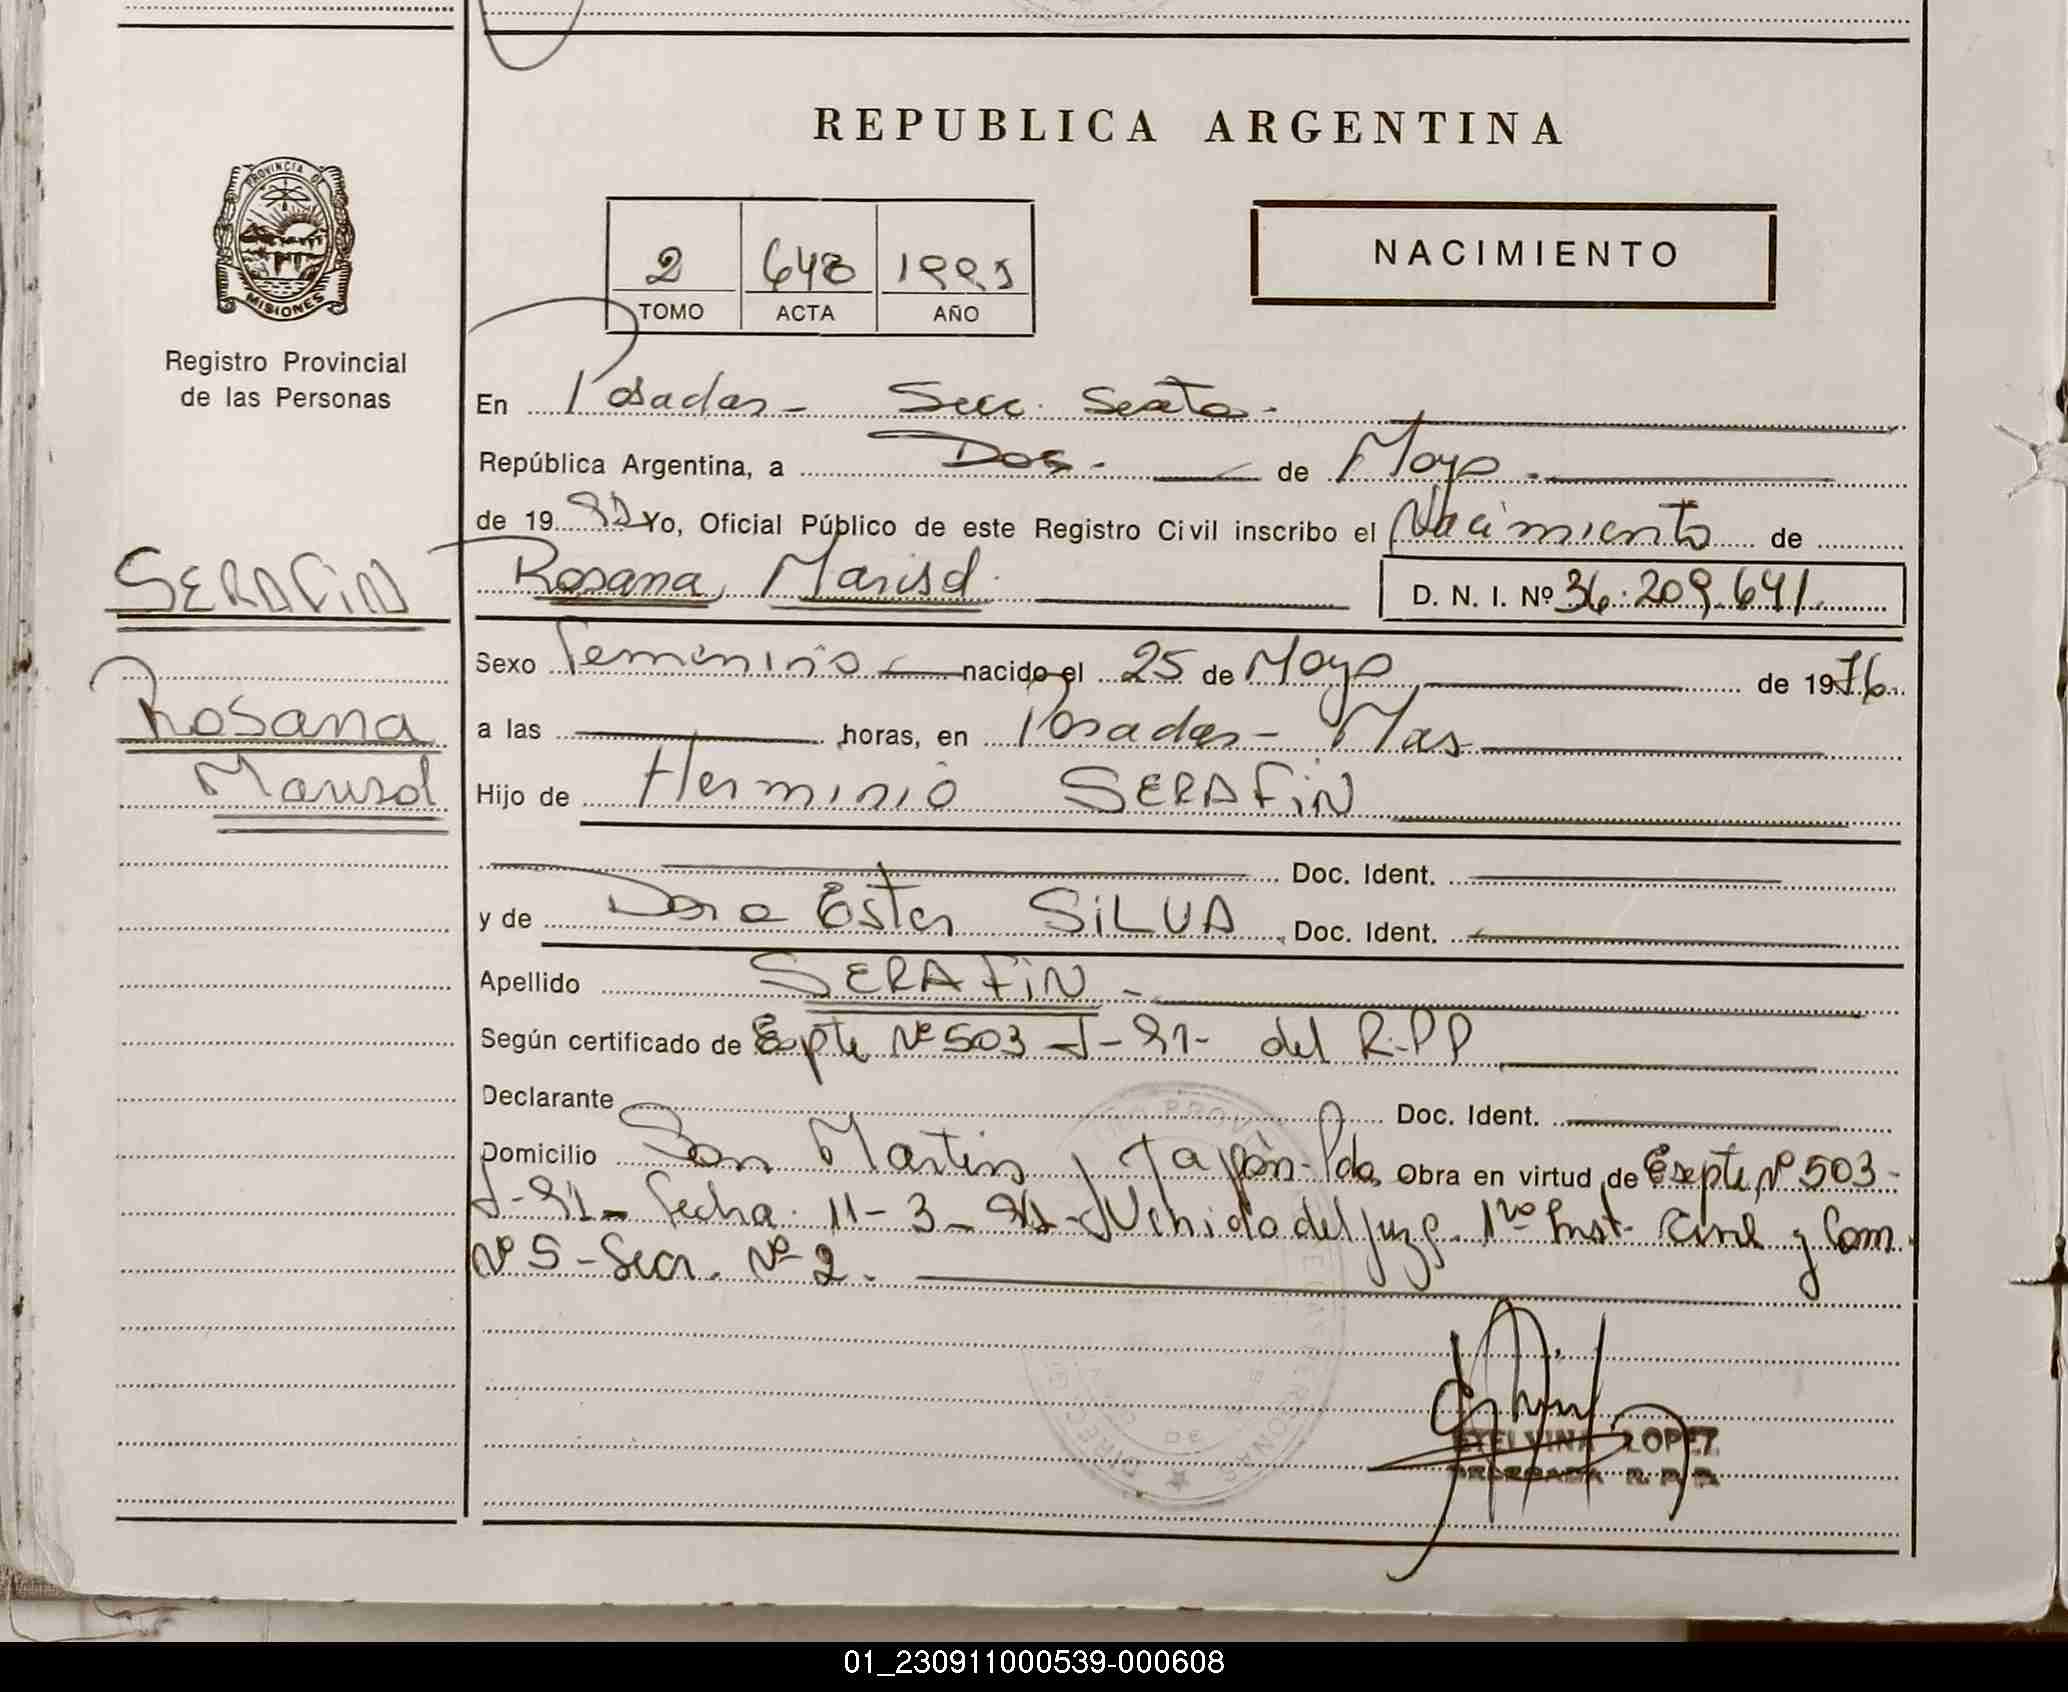 REPUBLICA ARGENTINA
PROVINCIA DE
MISIONES
Registro Provincial
de las Personas
NACIMIENTO
2 648 1991
TOMO ACTA AÑO
En Posadas - Secc. Sexta -
República Argentina, a Dos - de Mayo -
de 19 Yo, Oficial Público de este Registro Civil inscribo el Nacimiento de
Rosana Marisol D. N. I. Nº 36.209.641
SERAFiN
Rosana
Marisol
Sexo Femenino nacido el 25 de Mayo de 1976
a las horas, en Posadas - Mas
Hijo de Herminio SERAFiN
Doc. Ident.
y de Dora Ester SiLVA Doc. Ident.
Apellido SERAFiN -
Según certificado de Expte Nº 503 - J - 91 - del R.P.P
Declarante Doc. Ident.
Domicilio San Martin y Japón - Pdas Obra en virtud de Expte Nº 503 -
J - 91 - fecha 11 - 3 - 91 - del Juzg. 1ra Inst. Civil y Com.
Nº 5 - Secr. Nº 2.
LOPEZ
DELEGADA R. P. P.
01_230911000539-000608